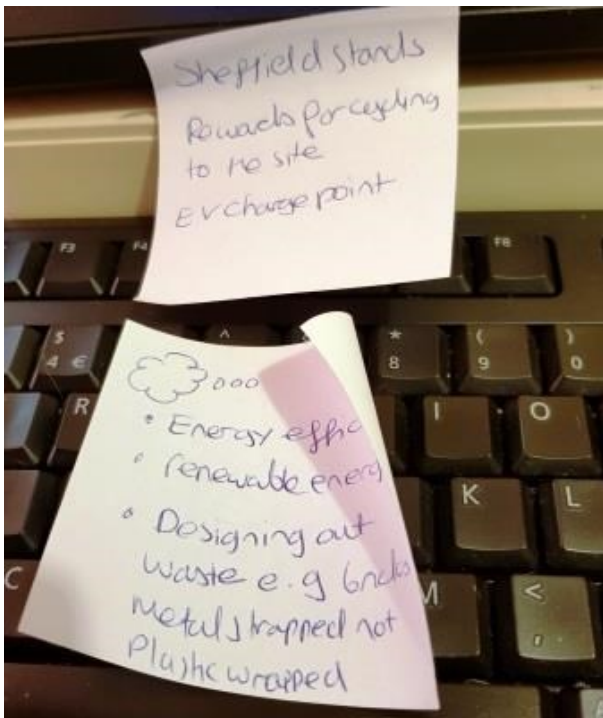 Sheffield Stands
Rewards for cycling
to the site
EV charge point
F3
F4
F8
$
4 €
^
*
8
(
9
)
0
R
I
O
K
L
C
M
<
,
• Energy effic
• renewable energ
• Designing out
waste e.g bricks
Metal strapped not
Plastic wrapped